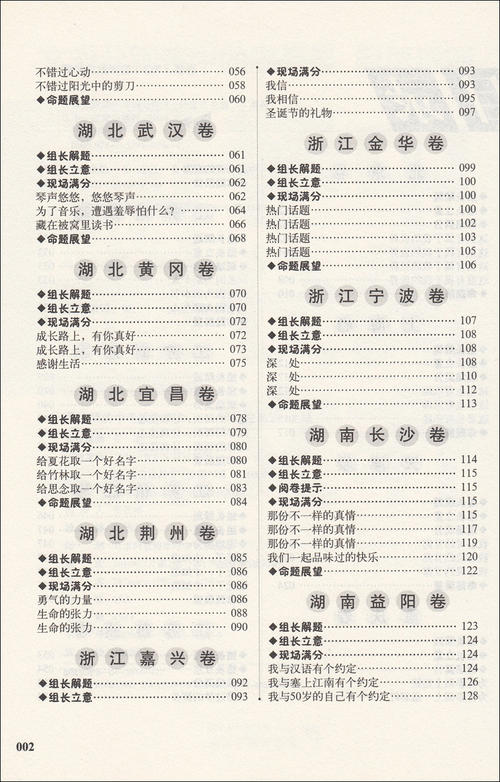 不错过心动……056
不错过阳光中的剪刀……058
◆命题展望……060
湖北武汉卷
◆组长解题……061
◆组长立意……061
◆现场满分……062
琴声悠悠，悠悠琴声……062
为了音乐，遭遇羞辱怕什么？……064
藏在被窝里读书……066
◆命题展望……068
湖北黄冈卷
◆组长解题……070
◆组长立意……070
◆现场满分……072
成长路上，有你真好……072
成长路上，有你真好……073
感谢生活……075
湖北宜昌卷
◆组长解题……078
◆组长立意……079
◆现场满分……080
给夏花取一个好名字……080
给竹林取一个好名字……081
给思念取一个好名字……083
◆命题展望……084
湖北荆州卷
◆组长解题……085
◆组长立意……086
◆现场满分……086
勇气的力量……086
生命的张力……088
生命的张力……090
浙江嘉兴卷
◆组长解题……092
◆组长立意……093
◆现场满分……093
我信……093
我相信……095
圣诞节的礼物……097
浙江金华卷
◆组长解题……099
◆组长立意……100
◆现场满分……100
热门话题……100
热门话题……102
热门话题……103
热门话题……105
◆命题展望……106
浙江宁波卷
◆组长解题……107
◆组长立意……108
◆现场满分……108
深　处……108
深　处……110
深　处……112
◆命题展望……113
湖南长沙卷
◆组长解题……114
◆组长立意……115
◆阅卷提示……115
◆现场满分……115
那份不一样的真情……115
那份不一样的真情……117
那份不一样的真情……119
我们一起品味过的快乐……120
◆命题展望……122
湖南益阳卷
◆组长解题……123
◆组长立意……124
◆现场满分……124
我与汉语有个约定……124
我与塞上江南有个约定……126
我与50岁的自己有个约定……128
002